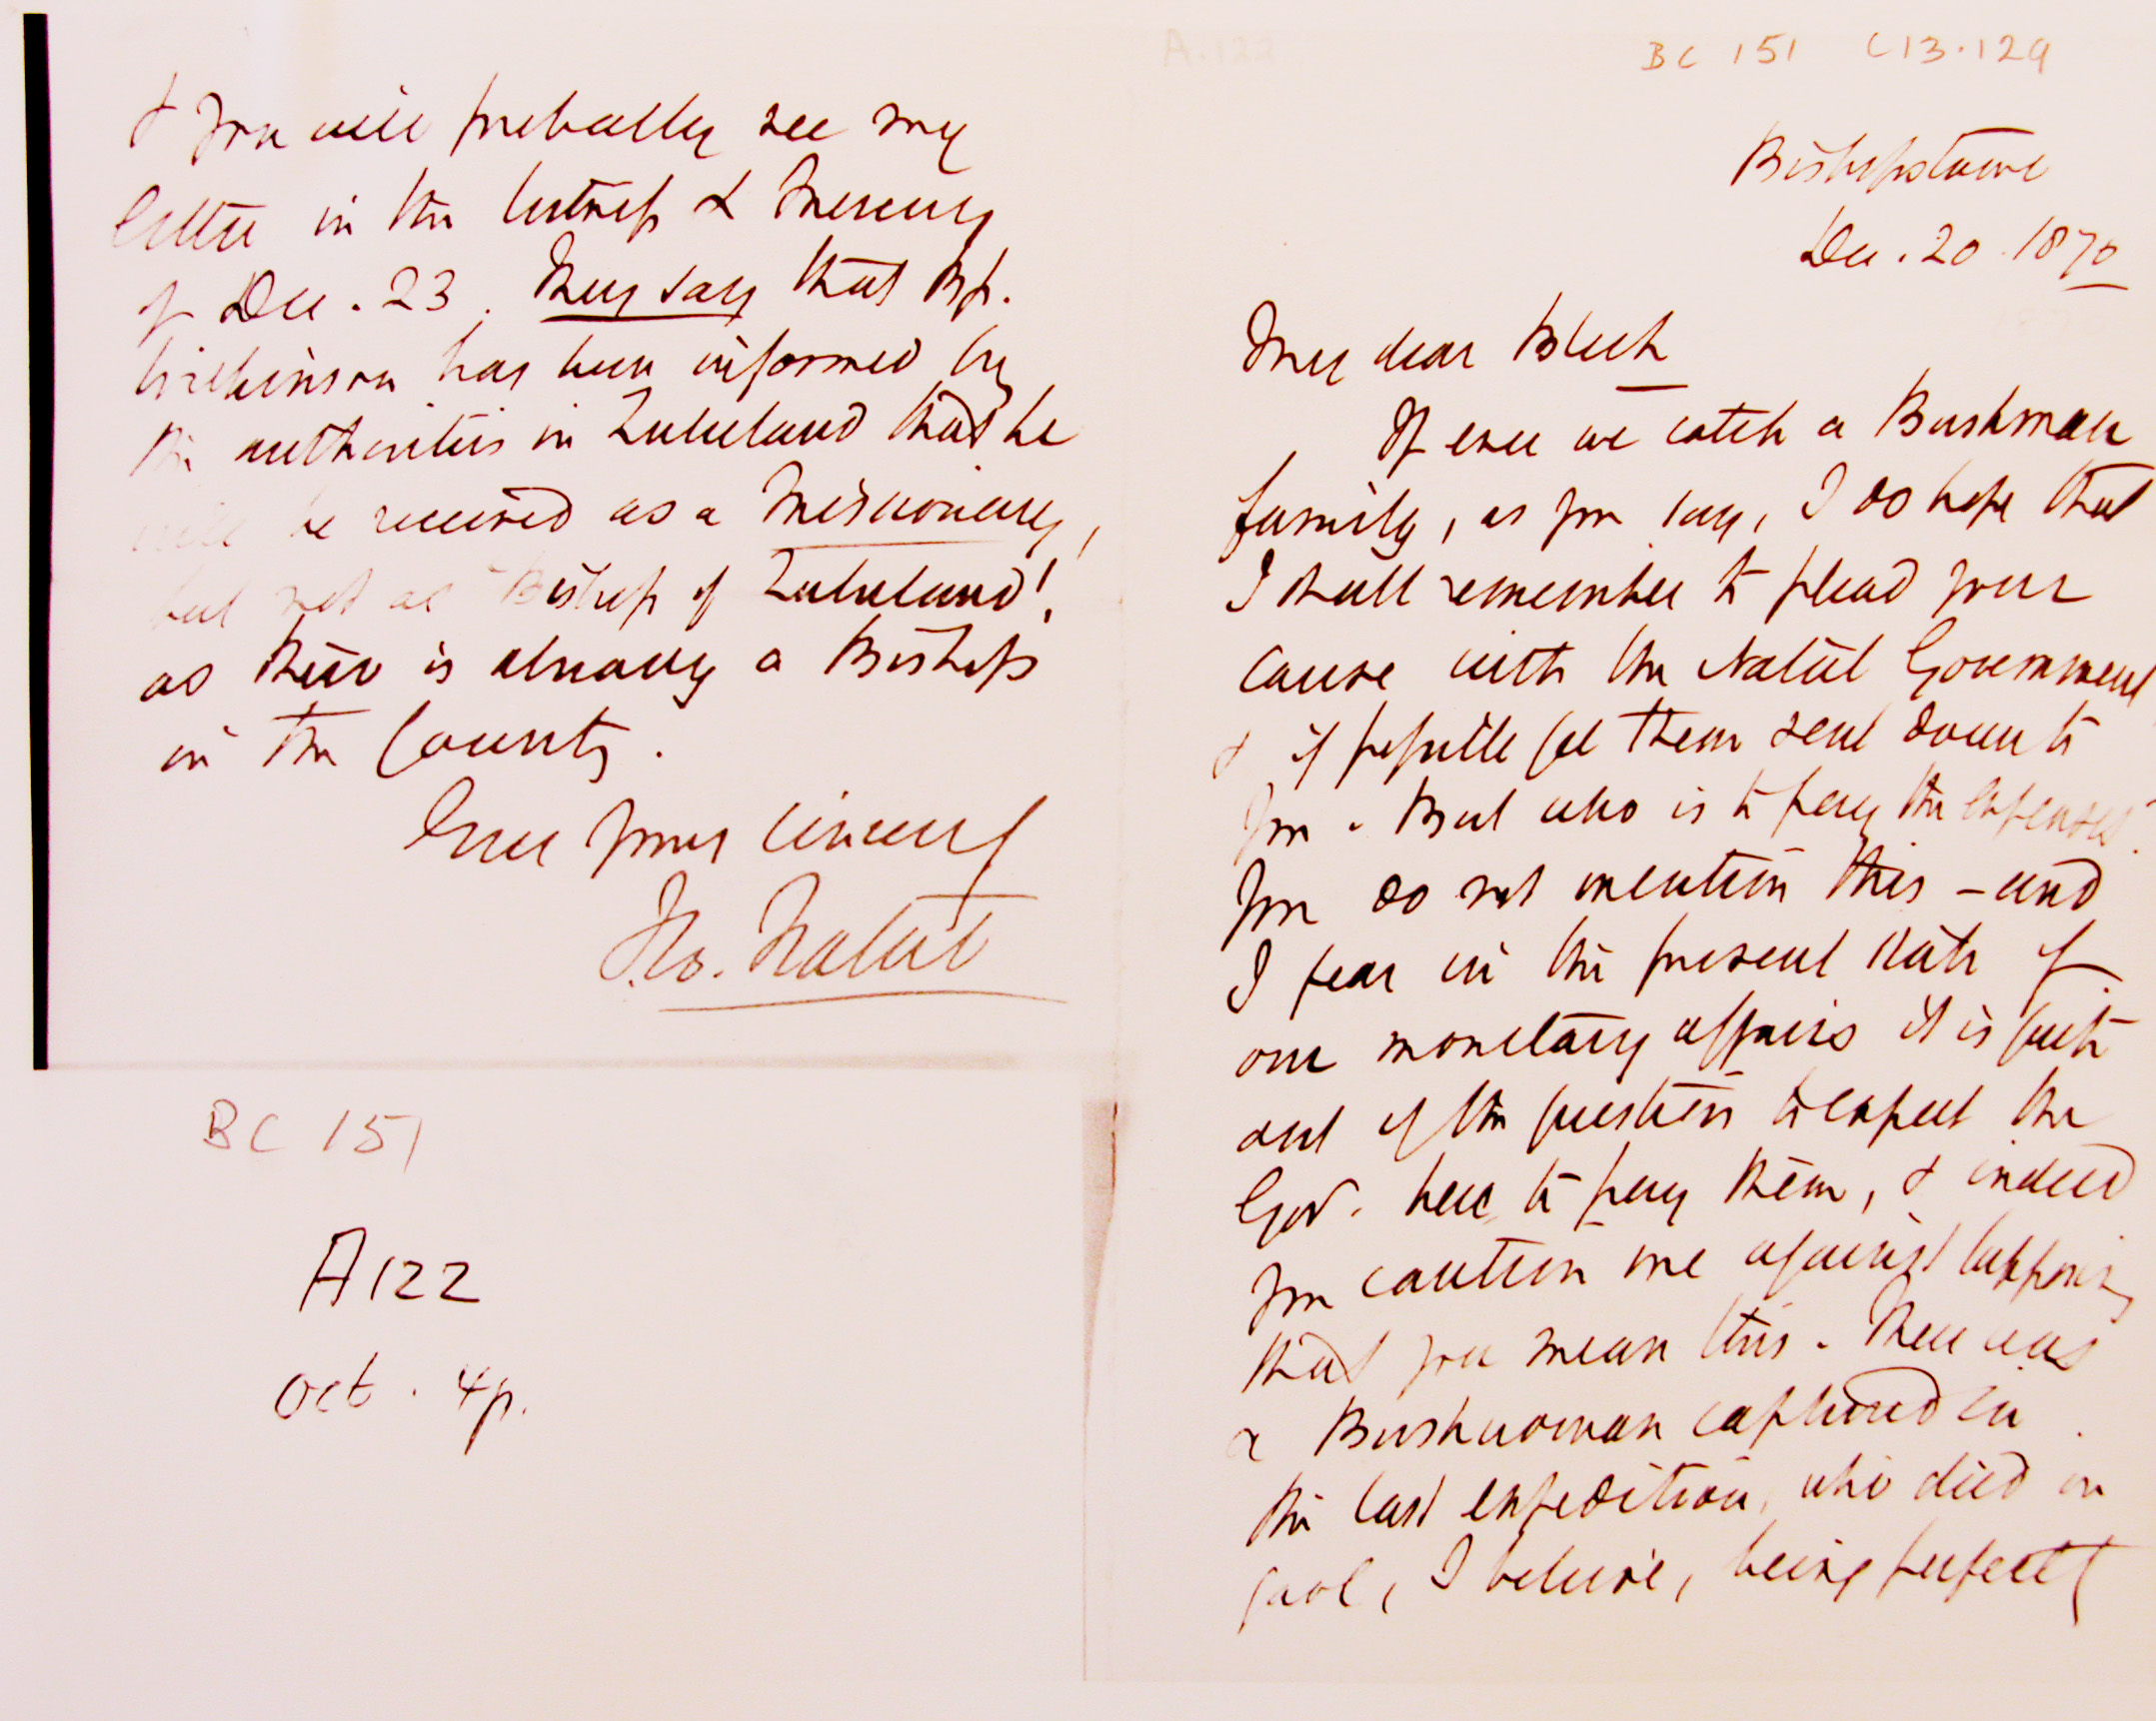 A.122
BC 151 C13.129
Bishopstowe
Dec. 20. 1870
My dear Bleek
If ever we catch a Bushman
family, as you say, I do hope that
I shall remember to plead your
cause with the Natal Government
& if possible get them sent down to
you. But who is to pay the expenses.
You do not mention this – and
I fear in the present state of
our monetary affairs it is quite
out of the question to expect the
Govt. here to pay them, & indeed
you caution me against supposing
that you mean this. There was
a Bushwoman captured in
the last expedition, who died in
gaol, I believe, being perfectly
& you will probably see my
letter in the & Mercury
of Dec. 23. They say that Bp.
Wilkinson has been informed by
the authorities in Zululand that he
will be received as a Missionary,
but not as "Bishop of Zululand'!,
as there is already a Bishop
in the Country.
Ever yours sincerely
Jno. Natal
BC 151
A122
Oct. 4p.